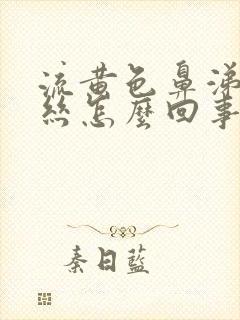 流黄色鼻涕
絲怎麼回事
秦日藍